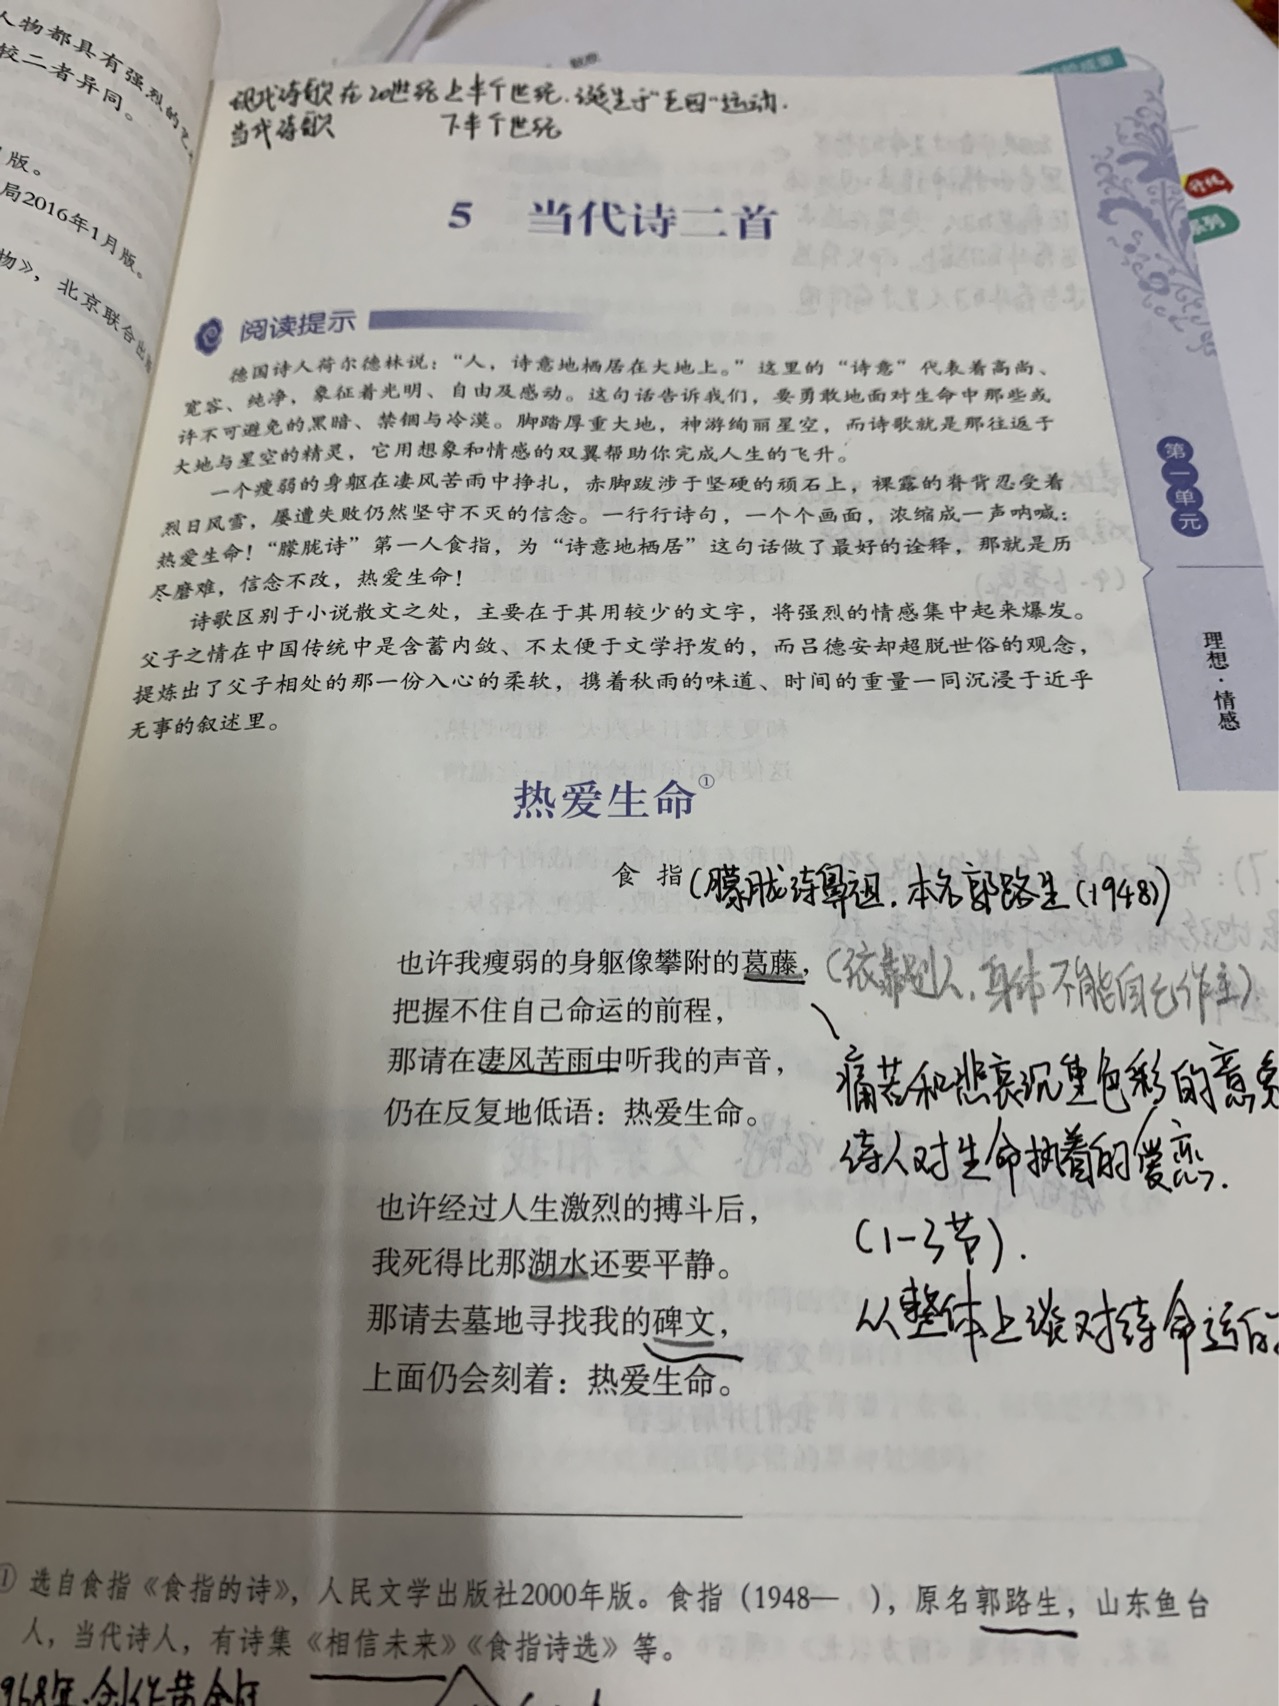 人物都具有强烈的艺
较二者异同。
版。
局2016年1月版。
物》，北京联合出
现代诗歌在20世纪上半个世纪.诞生于“五四”运动.
当代诗歌 下半个世纪
5 当代诗二首
阅读提示
德国诗人荷尔德林说：“人，诗意地栖居在大地上。”这里的“诗意”代表着高尚、
宽容、纯净，象征着光明、自由及感动。这句话告诉我们，要勇敢地面对生命中那些或
许不可避免的黑暗、禁锢与冷漠。脚踏厚重大地，神游绚丽星空，而诗歌就是那往返于
大地与星空的精灵，它用想象和情感的双翼帮助你完成人生的飞升。
一个瘦弱的身躯在凄风苦雨中挣扎，赤脚跋涉于坚硬的顽石上，裸露的脊背忍受着
烈日风雪，屡遭失败仍然坚守不灭的信念。一行行诗句，一个个画面，浓缩成一声呐喊：
热爱生命！“朦胧诗”第一人食指，为“诗意地栖居”这句话做了最好的诠释，那就是历
尽磨难，信念不改，热爱生命！
诗歌区别于小说散文之处，主要在于其用较少的文字，将强烈的情感集中起来爆发。
父子之情在中国传统中是含蓄内敛、不太便于文学抒发的，而吕德安却超脱世俗的观念，
提炼出了父子相处的那一份入心的柔软，携着秋雨的味道、时间的重量一同沉浸于近乎
无事的叙述里。
第一单元
理想·情感
热爱生命①
食 指(朦胧诗鼻祖.本名郭路生(1948))
也许我瘦弱的身躯像攀附的葛藤，(依靠别人,身体不能自己作主)
把握不住自己命运的前程，
那请在凄风苦雨中听我的声音，
仍在反复地低语：热爱生命。
痛苦和悲哀沉重色彩的意象
诗人对生命执着的爱恋.
(1-3节).
也许经过人生激烈的搏斗后，
我死得比那湖水还要平静。
那请去墓地寻找我的碑文，
上面仍会刻着：热爱生命。
从整体上谈对待命运的
① 选自食指《食指的诗》，人民文学出版社2000年版。食指（1948— ），原名郭路生，山东鱼台
人，当代诗人，有诗集《相信未来》《食指诗选》等。
968年.创作黄金年